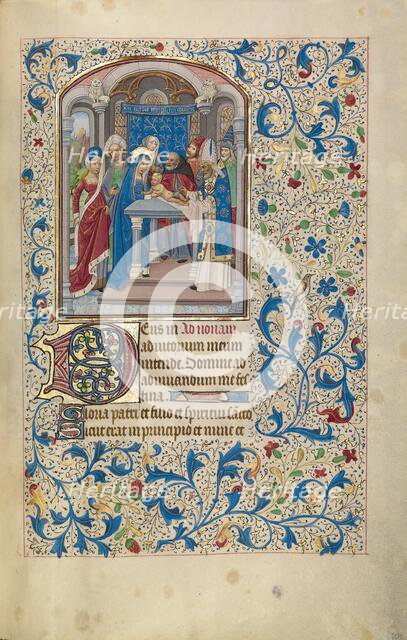 Eus in Ad nonam
adiutorium meum
intende. Domine ad
adiuvandum me fes
tina.
Gloria patri et filio et spiritui sancto
sicut erat in principio et nunc et
Heritage
Heritage
Heritage
Heritage
Heritage
Heritage